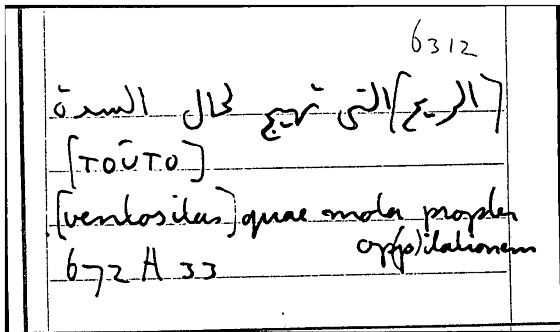 6312
[الريح] التى تهيج لحال السدة
[τοῦτο]
[ventositas] quae mota propter
op(p)ilationem
672 A 33